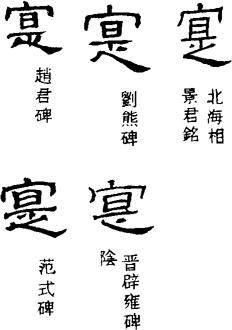 寔
北海相
景君銘
寔
劉熊碑
寔
趙君碑
寔
晋辟雍碑
陰
寔
范式碑